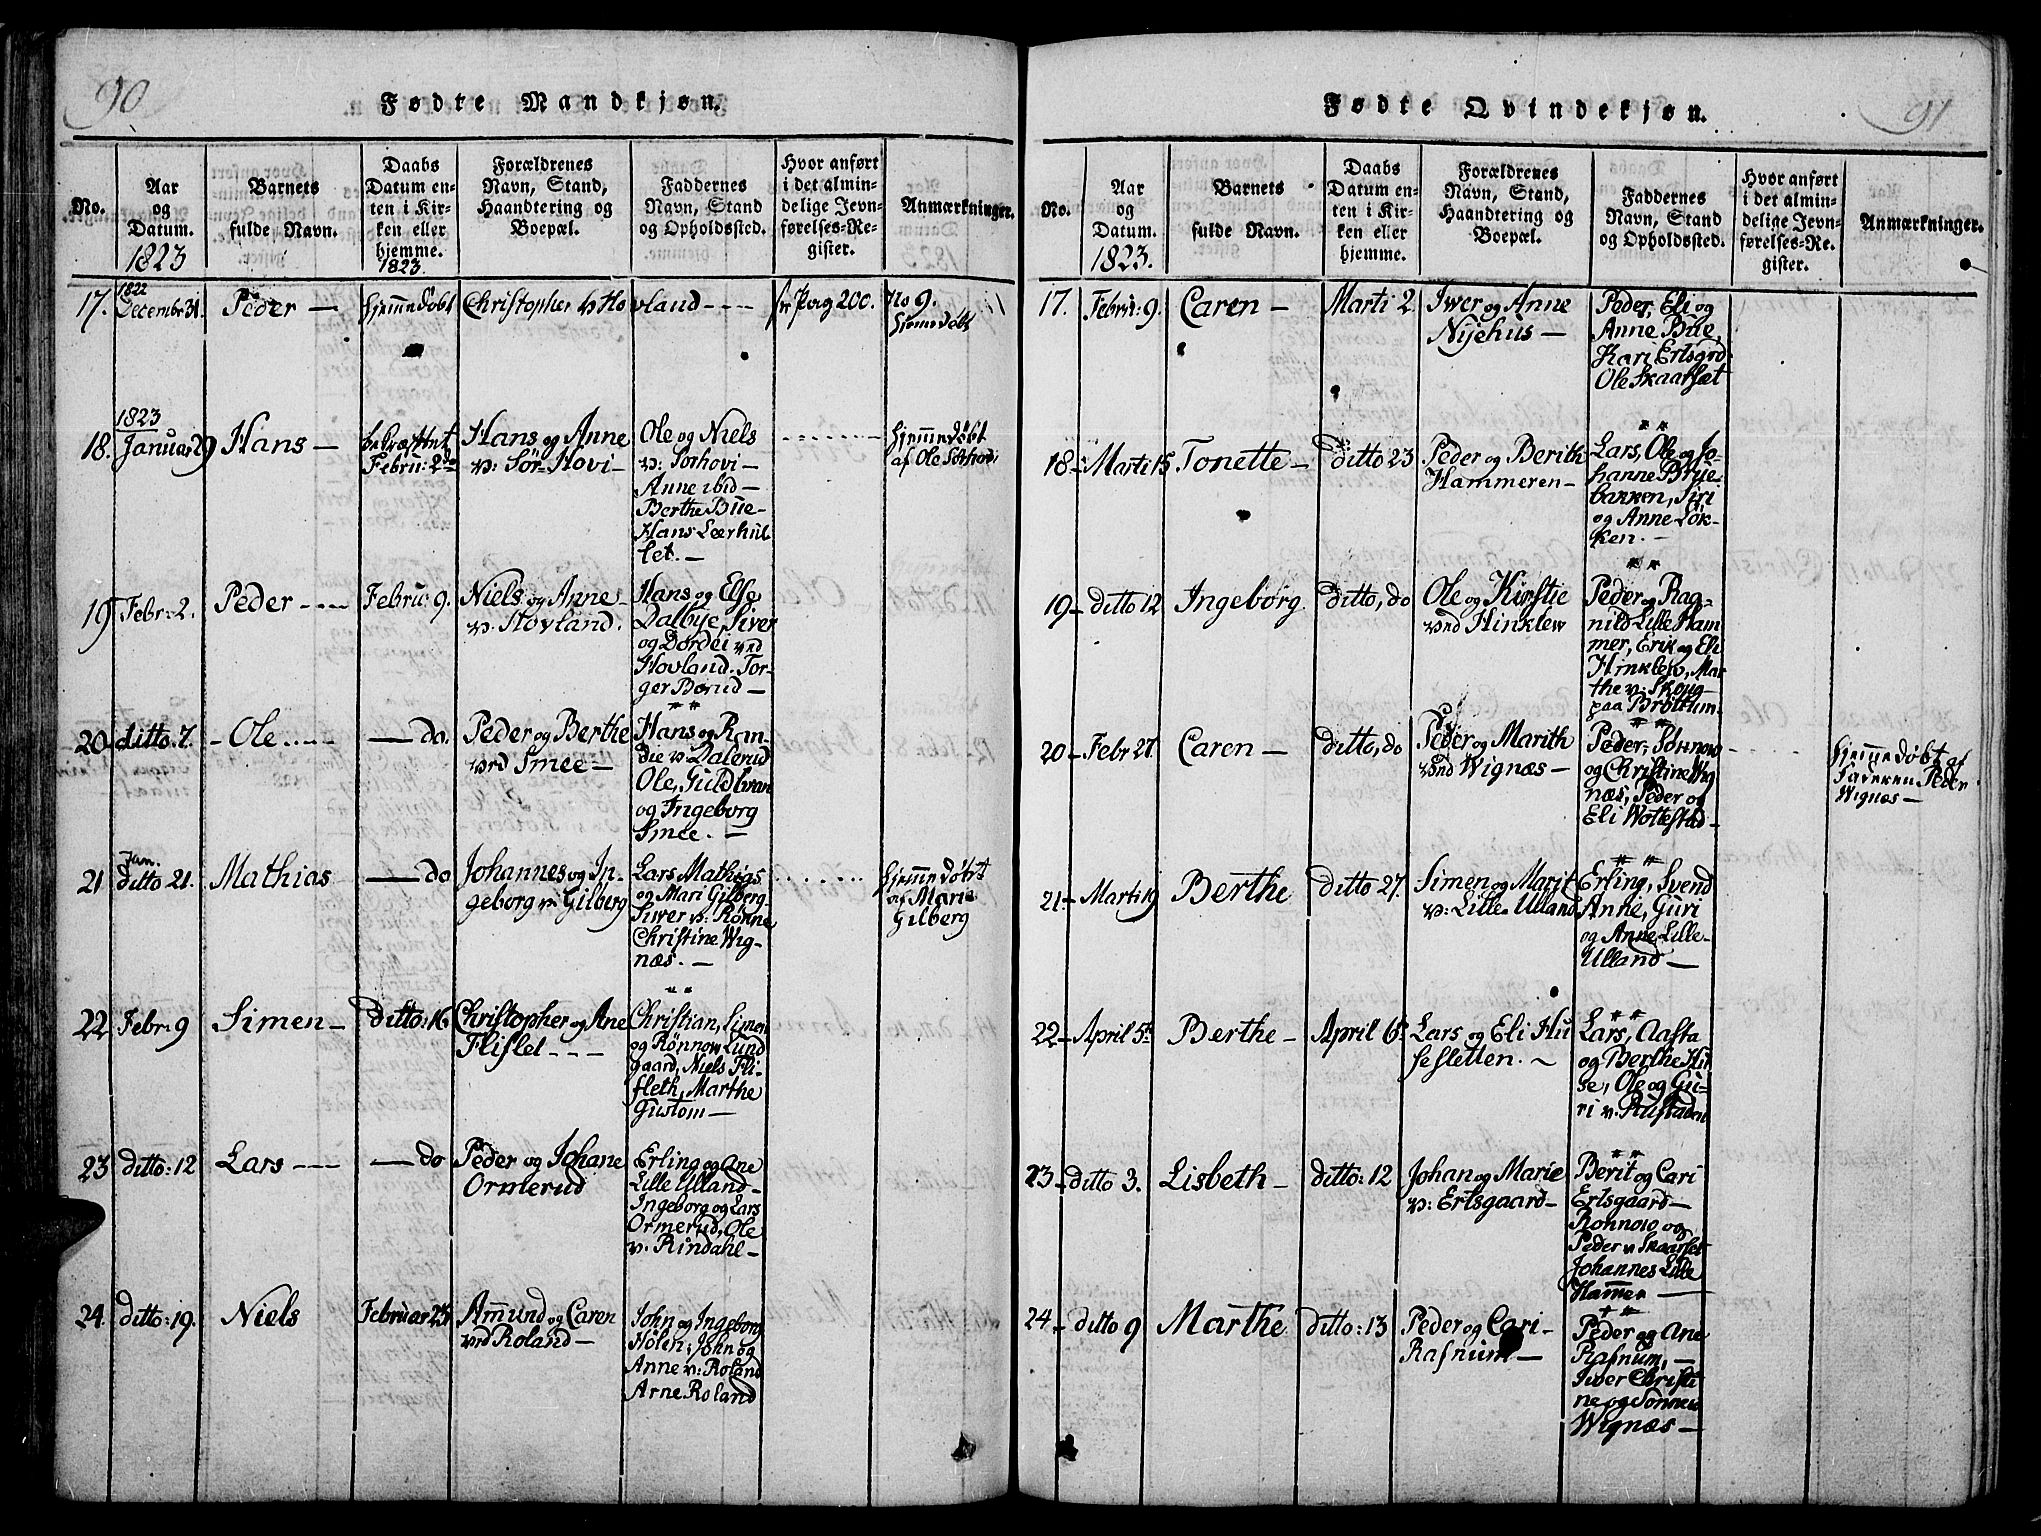 90.
Fødte Mandkjøn.
No.
Aar
og
Datum.
1823
Barnets
fulde Navn.
Daabs
Datum en-
ten i Kir-
ken eller
hjemme.
1823.
Forældrenes
Navn, Stand,
Haandtering og
Boepæl.
Faddernes
Navn, Stand
og Opholdssted.
Hvor anført
i det almin-
delige Jevn-
førelses-Re-
gister.
Anmærkninger.
17.
1822
Decembr 31.
Peder —
Hjemmedøbt
Christopher v: Hovland - - - -
see pag 200.
No 9.
Hjemedøbt
18.
1823
Januar 29
Hans —
bekræftet
Febru: 2d
Hans og Anne
v: Sør-Hovi -
Ole og Niels
v: Sorhovi -
Anne ibid -
Berthe Bue -
Hans Leerhul
let. —
Hjemmedøbt
af Ole Sørhovi
19
Febr: 2.
Peder - - - -
Febru: 9.
Niels og Anne
v: Hovland.
Hans og Else
Dalbye, Siver
og Dordei ved
Hovland. Tor-
ger Borud —
20
ditto 7.
- Ole - - - -
— do.
Peder og Berthe
ved Smee —
Hans og Ran-
die v: Dalerud
Ole, Guldbran
og Ingeborg
Smee. —
21
Jan.
ditto 21.
Mathias
— do
Johannes og In-
geborg v: Gilberg
Lars Mathias
og Mari Gilberg
Siver v: Rønne
Christine Wig-
næs. —
Hjemmedøbt
af Marie
Gilberg
22
Febr: 9
Simen —
ditto: 16.
Christopher og Ane
Fliflet - - -
Christian, Simon
og Rønnow Lund
gaard, Niels Fli-
fleth, Marthe
Gustom —
23
ditto: 12
Lars - - -
— do
Peder og Johane
Ormerud
Erling og Ane
Lille Ulland -
Ingeborg og Lars
Ormerud, Ole
v: Rindahl -
24.
ditto: 19.
Niels
Februar 23.
Amund og Caren
ved Roland —
John og Ingeborg
Holen, John og
Anne v: Roland
Arne Roland
Fødte Qvindekjøn.
91
No.
Aar
og
Datum.
1823.
Barnets
fulde Navn.
Daabs
Datum en-
ten i Kir-
ken eller
hjemme.
Forældrenes
Navn, Stand,
Haandtering og
Boepæl.
Faddernes
Navn, Stand
og Opholdssted.
Hvor anført
i det almin-
delige Jevn-
førelses-Re-
gister.
Anmærkninger.
17.
Febru: 9.
Caren —
Marti 2.
Iwer og Anne
Nijehus —
Peder, Eli og
Anne Bue,
Kari Ertsgrd
Ole Skaarsæt
18
Marti 15
Tonette —
Ditto 23
Peder og Berith
Hammeren —
Lars, Ole og Jo-
hanne Brue
bakken, Siri
og Anne Løk-
ken. —
19
ditto 12
Ingeborg.
ditto, do
Ole og Kirstie
ved Hinklew
Peder og Rag-
nild Lille Ham
mer, Erik og Eli
Hinklew, Mar
the v: Skoug-
paa Brøttum.
20
Febr 27.
Caren —
ditto, do
Peder og Marith
ved Wignæs —
Peder, Sønnow
og Christine Wig
næs, Peder og
Eli Wollestad -
Hjemmedøbt af
Faderen Peder
Wignæs —
21
Marti 19
Berthe
ditto 27.
Simen og Marit
v: Lille Ulland
Erling, Svend
Anne, Guri
og Anne Lille-
Ulland —
22
April 5t
Berthe -
April 6t
Lars og Eli Hu
sesletten. ~
Lars, Aasta
og Berthe Hu-
se, Ole og Gu-
ri v: Rustaden
23
ditto 3.
Lisbeth —
ditto: 12
Johan og Marie
v: Ertsgaard -
Berit og Cari
Ertsgaard —
Ronnow og
Peder v: Skaarset
Johannes Lille
Hammer —
24
ditto 9
Marthe
ditto: 13
Peder og Cari —
Rasnum —
Peder og Ane
Rasnum, —
Iwer Christi
ne og Sønnow
Wignæs —